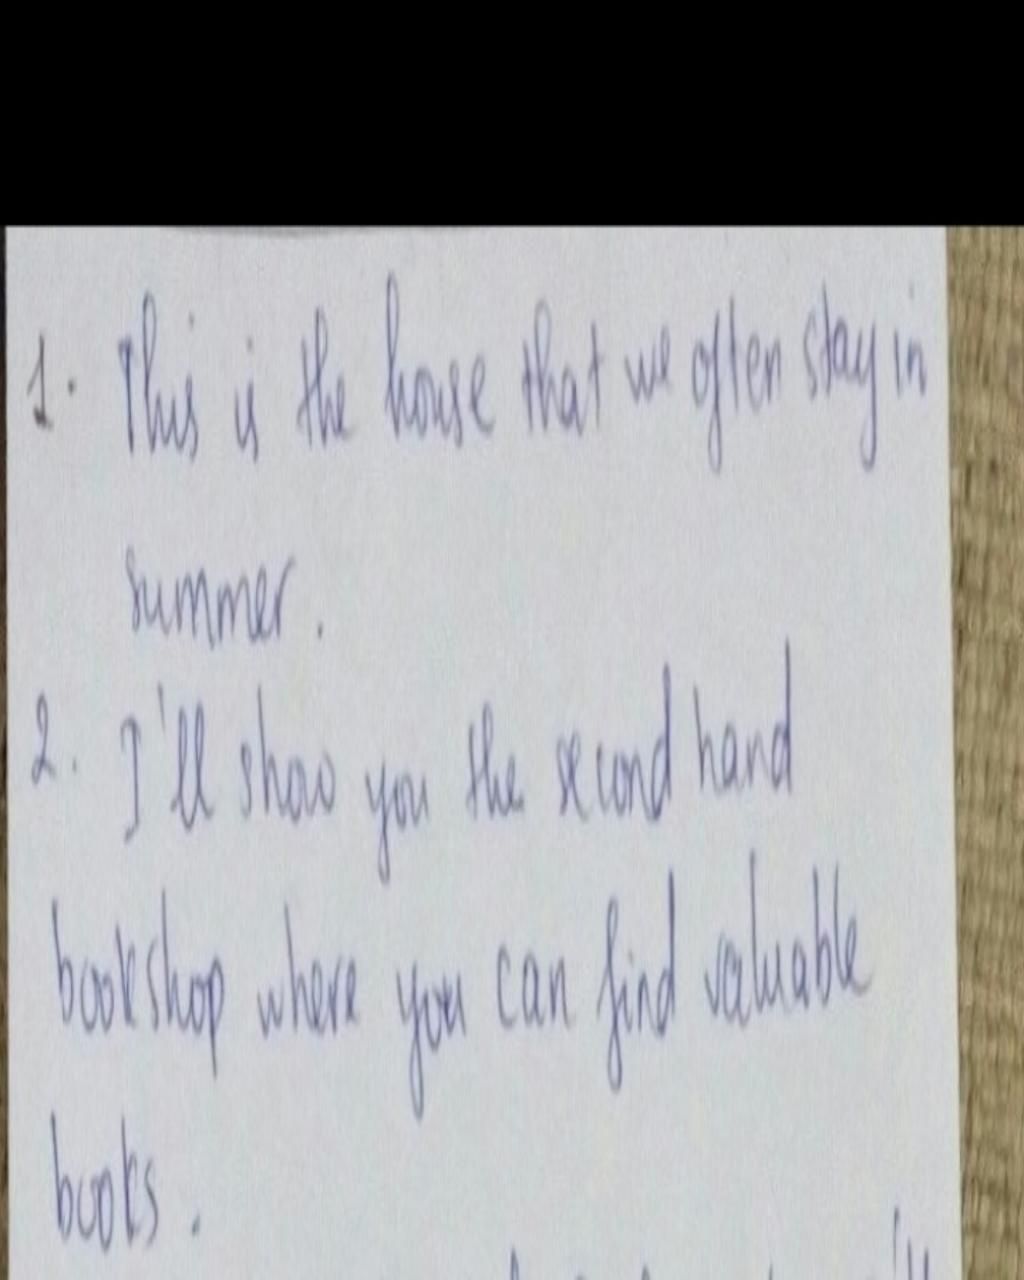 1. This is the house that we often stay in
summer.
2. I'll show you the second hand
bookshop where you can find valuable
books.